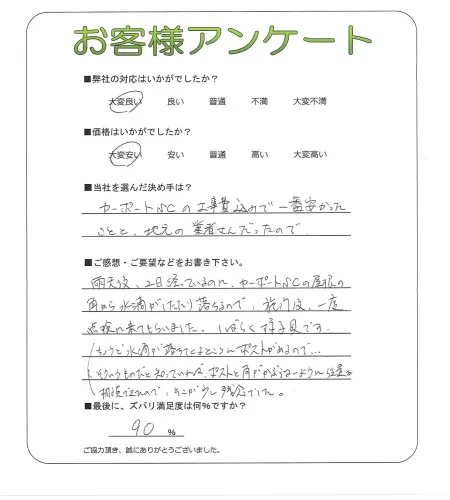 お客様アンケート
■弊社の対応はいかがでしたか?
大変良い 良い 普通 不満 大変不満
■価格はいかがでしたか?
大変安い 安い 普通 高い 大変高い
■当社を選んだ決め手は?
カーポートSCの工事費込みで一番安かった
ことと、地元の業者さんだったので
■ご感想・ご要望などをお書き下さい。
雨天後、2日経っているのに、カーポートSCの屋根の
角から水滴がしたたり落ちるので、施行後、一度
点検に来てもらいました。しばらく様子見です。
ちょうど水滴が落ちてくるところにポストがあるので…
そういうものだと知っていれば、ポストと角がかぶらないように位置を
相談できたので、そこが少し残念でした。
■最後に、ズバリ満足度は何%ですか?
90 %
ご協力頂き、誠にありがとうございました。